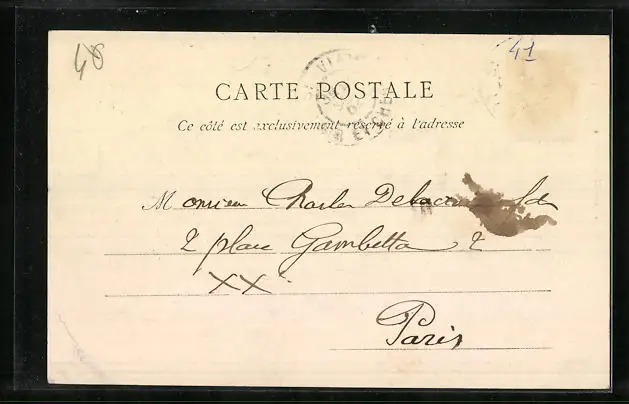 48
41
CARTE POSTALE
Ce côté est exclusivement réservé à l'adresse
Monsieur Charles
2 place Gambetta 2
XX
Paris